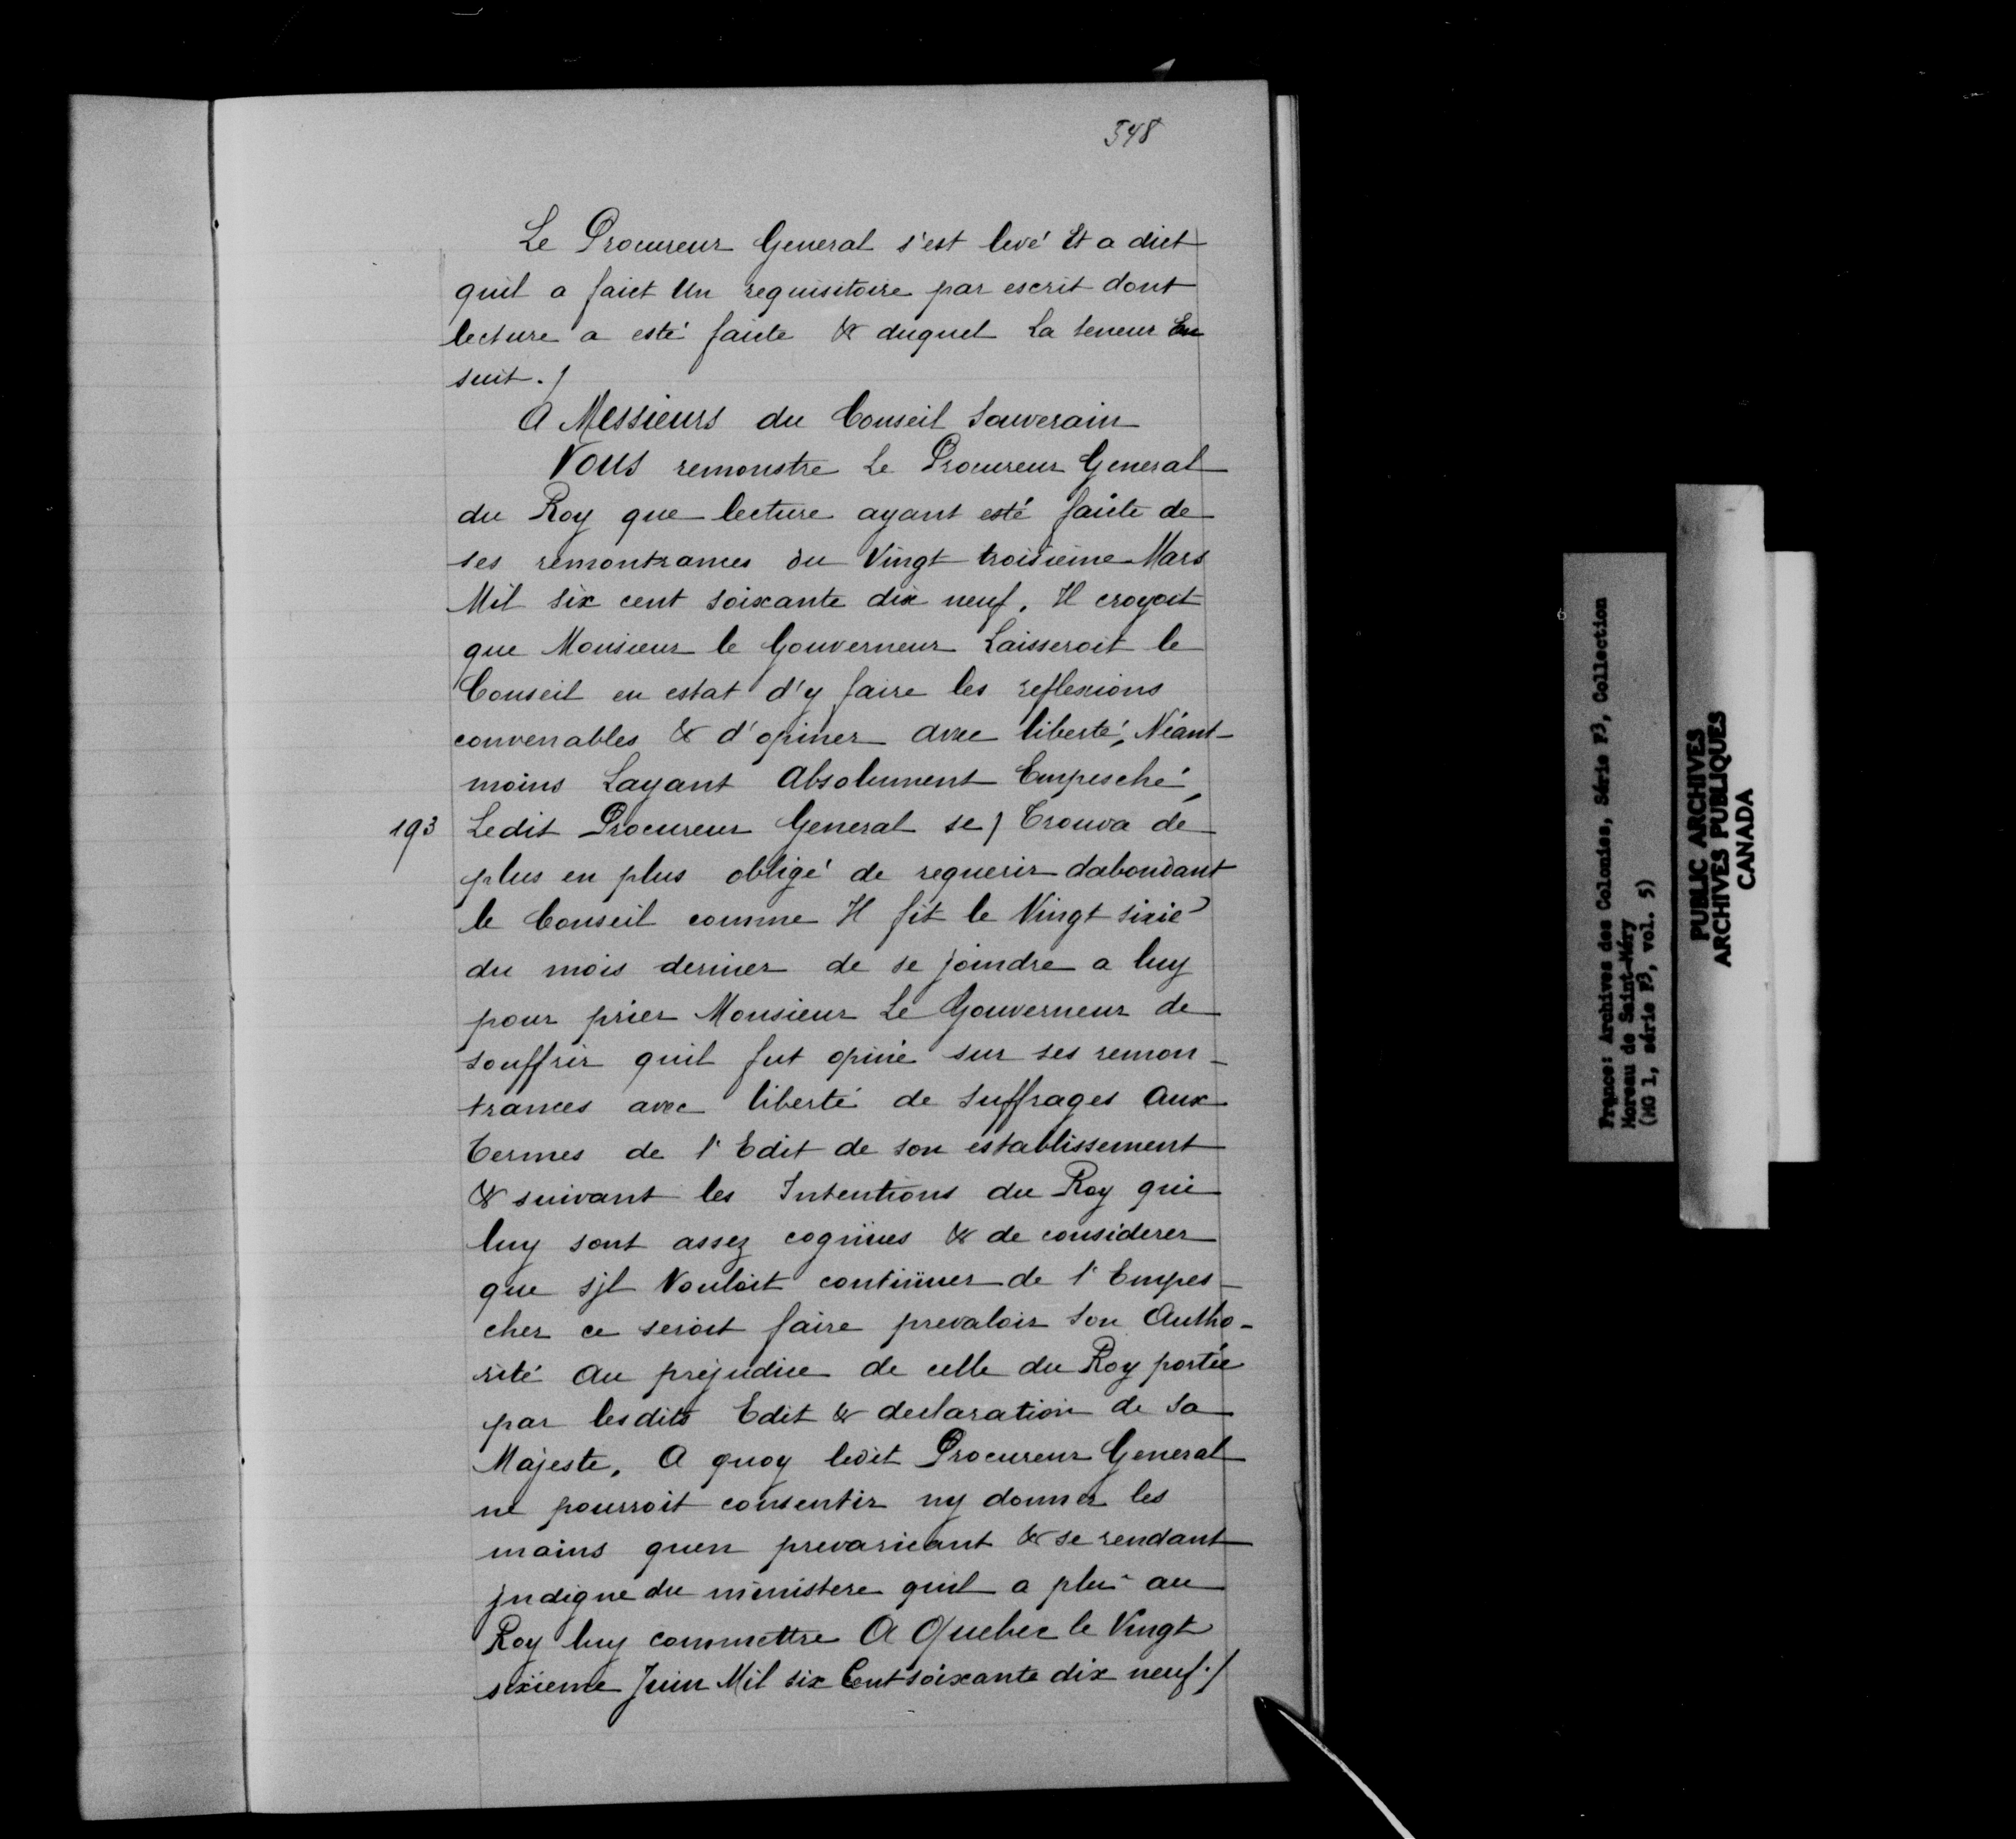 548
Le Procureur General s'est levé Et a dict
quil a faict Un requisitoire par escrit dont
lecture a esté faite & duquel La teneur En
suit ./
A Messieurs du Conseil Souverain
Vous remonstre Le Procureur General
du Roy que lecture ayant esté faite de
ses remontrances du Vingt troisieme Mars
Mil six cent soixante dix neuf. Il croyoit
que Monsieur le Gouverneur Laisseroit le
Conseil en estat d'y faire les reflexions
convenables & d'opiner avec liberté, Néant-
moins Layant Absolument Empesché,
193 Ledit Procureur General se / Trouva de
plus en plus obligé de requerir dabondant
le Conseil comme Il fit le Vingt sixie
du mois dernier de se joindre a luy
pour prier Monsieur Le Gouverneur de
souffrir quil fut opiné sur ses remon-
trances avec liberté de suffrages Aux
termes de l'Edit de son establissement
& suivant les Intentions du Roy qui
luy sont assez cognües & de considerer
que sjl Vouloit continüer de l'Empes-
cher ce seroit faire prevaloir son Autho-
rité Au prejudice de celle du Roy portée
par lesdits Edit & declaration de Sa
Majeste. A quoy ledit Procureur General
ne pourroit consentir ny donner les
mains quen prevaricant & se rendant
jndigne du ministere quil a plu au
Roy luy commettre A Quebec le Vingt
sixieme Juin Mil six Cent soixante dix neuf ./
France: Archives des Colonies, Série F3, Collection
Moreau de Saint-Méry
(MG 1, série F3, vol. 5)
PUBLIC ARCHIVES
ARCHIVES PUBLIQUES
CANADA